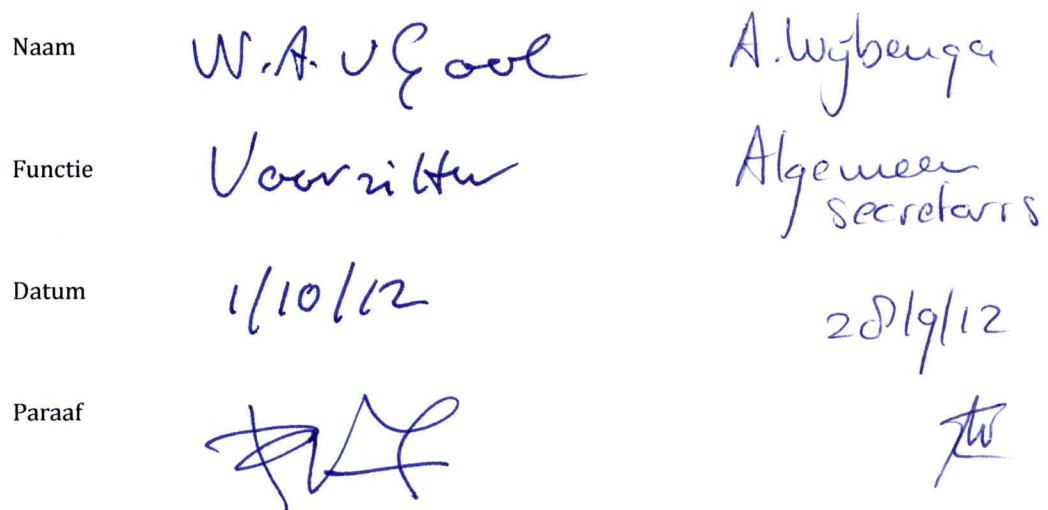 Naam W.A. v Gool A. Wijbenga
Functie Voorzitter Algemeen
secretaris
Datum 1/10/12 28/9/12
Paraaf